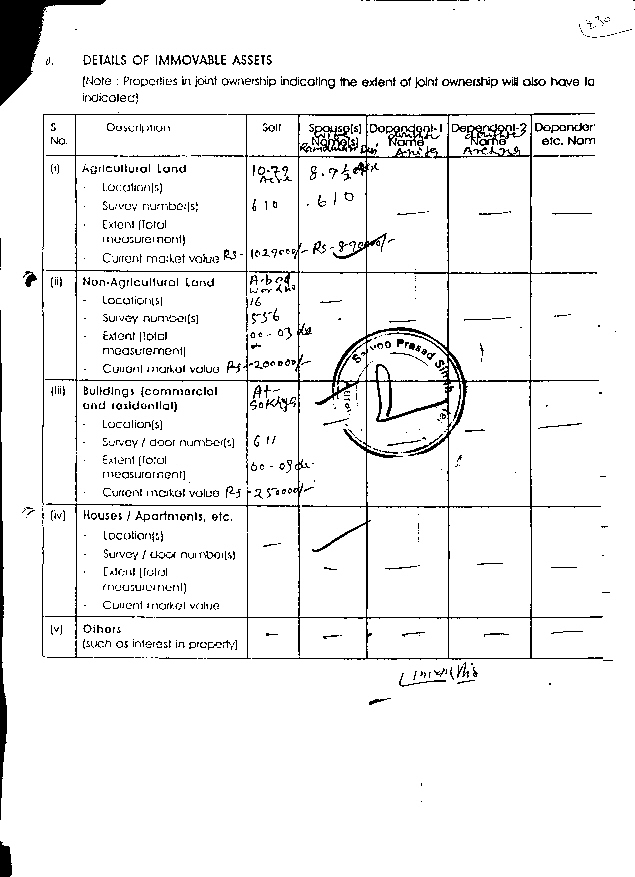 830
B. DETAILS OF IMMOVABLE ASSETS
(Note : Properties in joint ownership indicating the extent of joint ownership will also have to
indicated)
S No. Description Self Spouse(s) Name(s) Dependent-1 Name Dependent-2 Name Dependen etc. Nam
(i) Agricultural Land 10.79 Acre 8.9½
- Location(s)
- Survey number(s) 610 610
- Extent (Total
measurement)
- Current market value Rs - 1029000/- Rs - 890000/-
(ii) Non-Agricultural Land
- Location(s) 16
- Survey number(s) 556
- Extent (Total 00-03
measurement)
- Current market value Rs - 200000/-
(iii) Buildings (commercial At-
and residential)
- Location(s)
- Survey / door number(s) 611
- Extent (Total 00-03
measurement)
- Current market value Rs - 250000/-
Prasad Singh
(iv) Houses / Apartments, etc.
- Location(s)
- Survey / door number(s)
- Extent (Total
measurement)
- Current market value
(v) Others
(such as interest in property)